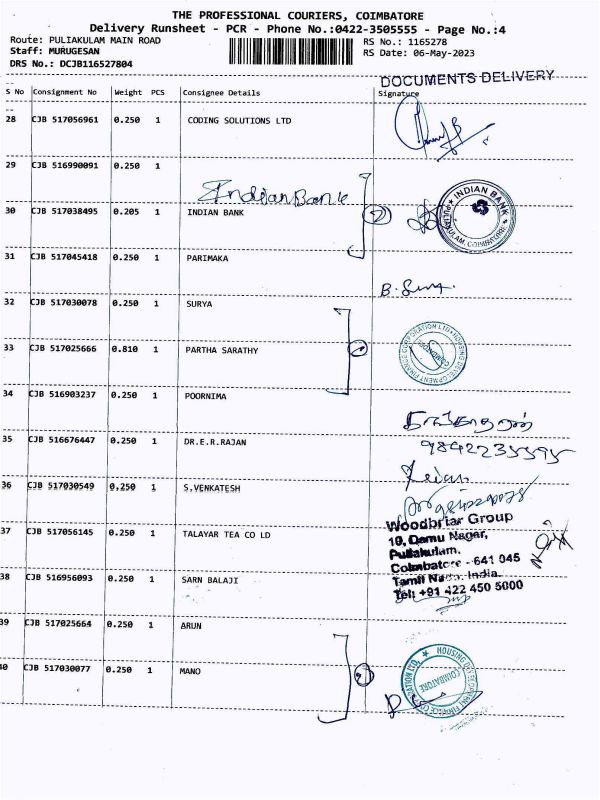 THE PROFESSIONAL COURIERS, COIMBATORE
Delivery Runsheet - PCR - Phone No.:0422-3505555 - Page No.:4
Route: PULIAKULAM MAIN ROAD RS No.: 1165278
Staff: MURUGESAN RS Date: 06-May-2023
DRS No.: DCJB116527804
DOCUMENTS DELIVERY
S No Consignment No Weight PCS Consignee Details Signature
28 CJB 517056961 0.250 1 CODING SOLUTIONS LTD
29 CJB 516990091 0.250 1
Indian Bank
30 CJB 517038495 0.205 1 INDIAN BANK
INDIAN BANK
PULIAKULAM, COIMBATORE
31 CJB 517045418 0.250 1 PARIMAKA
32 CJB 517030078 0.250 1 SURYA
33 CJB 517025666 0.810 1 PARTHA SARATHY
HOUSING DEVELOPMENT FINANCE CORPORATION LTD
34 CJB 516903237 0.250 1 POORNIMA
35 CJB 516676447 0.250 1 DR.E.R.RAJAN
36 CJB 517030549 0.250 1 S.VENKATESH
37 CJB 517056145 0.250 1 TALAYAR TEA CO LD
Woodbriar Group
10, Damu Nagar,
Puliakulam,
Coimbatore - 641 045
Tamil Nadu, India
Tel: +91 422 450 5000
38 CJB 516956093 0.250 1 SARN BALAJI
39 CJB 517025664 0.250 1 ARUN
40 CJB 517030077 0.250 1 MANO
HOUSING DEVELOPMENT FINANCE CORPORATION LTD.
COIMBATORE